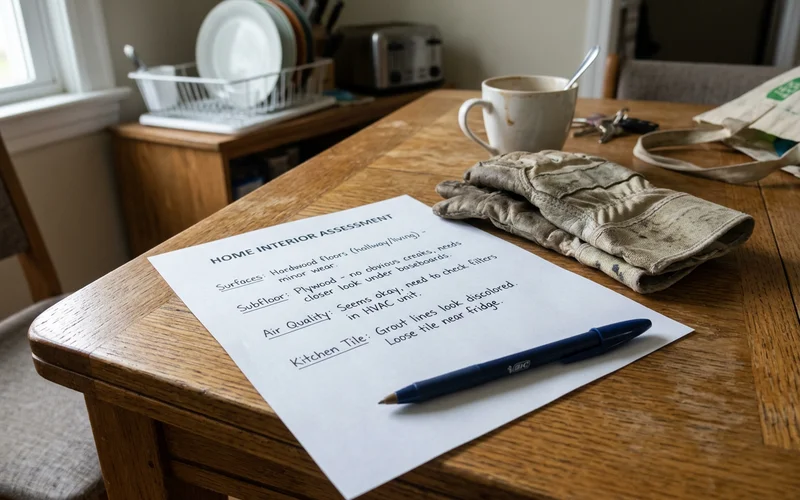 HOME INTERIOR ASSESSMENT
Surfaces: Hardwood floors (hallway/living) -
minor wear.
Subfloor: Plywood - no obvious creaks, needs
closer look under baseboards.
Air Quality: Seems okay, need to check filters
in HVAC unit.
Kitchen Tile: Grout lines look discolored.
Loose tile near fridge.